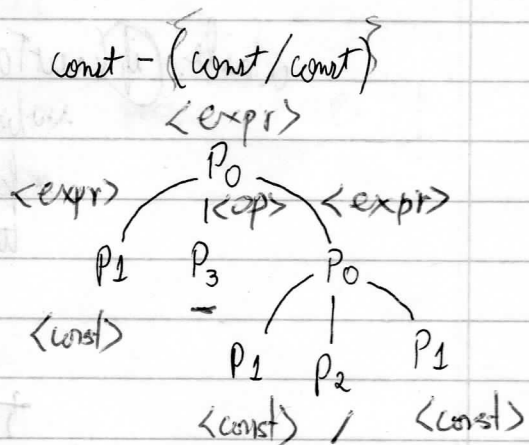 const - {(const/const)}
<expr>
P0
<expr> <op> <expr>
P1 P3 P0
-
<const>
P1 P2 P1
<const> / <const>